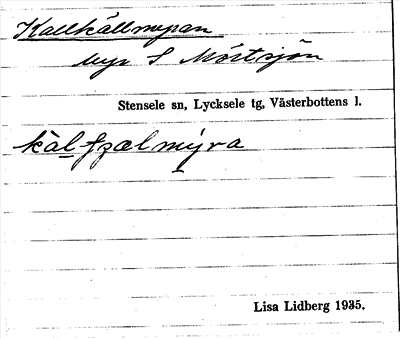 Kallkällmyran
Myr S Mörtsjön
Stensele sn, Lycksele tg, Västerbottens l.
kàlʃzælmýra
Lisa Lidberg 1935.